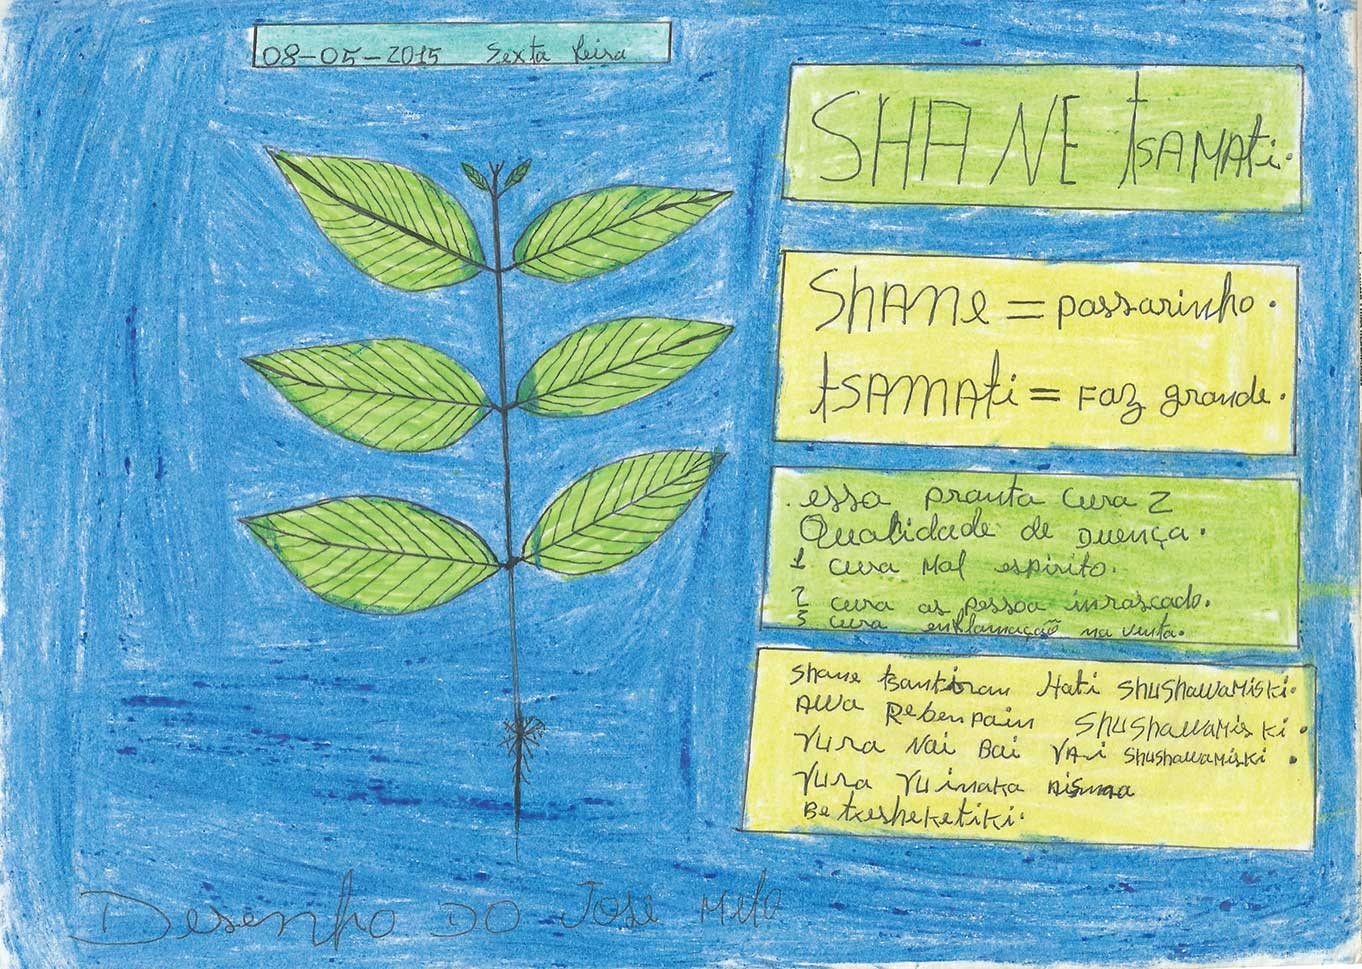 08-05-2015 Sexta feira
SHANE tSAMAti.
SHANe = passarinho.
tSAMAti = FAZ grande.
. essa pranta cura 2
Qualidade de Duença.
1 cura Mal espirito.
2 cura as pessoa inrascado.
3 cura na venta.
Shane tsantiran Hati SHUSHAWAMISKi.
AWA Rebenpain SHUSHAWAMISKi.
YURA NAi BAi YAi SHUSHAWAMiSKi.
YURA YUiNAKA
Betxesheketiki.
Desenho DO Jose Melo